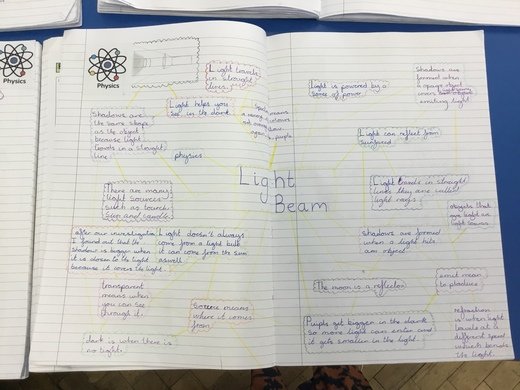 Physics
Physics
Light travels
in straight
lines.
Light helps you
see in the dark
Shadows are
the same shape
as the object
because light
travels in a straight
line
physics
means
There are many
light sources
such as torch
sun and candle
after our investigation
I found out that the
shadow is bigger when
it is closer to the light
because it covers the light.
Light doesn't always
come from a light bulb
it can come from the sun
aswell
transparent
means when
you can see
through it.
means
where it comes
from
dark is when there is
no light.
Light
Beam
Light is powered by a
of power
Shadows are
formed when
a opaque object
object
emiting light
Light can reflect from
Light travels in straight
lines they are called
light rays
objects that
light
Shadows are formed
when a light hits
an object
The moon is a reflector
emit mean
to produce
Pupils get bigger in the dark
so more light can enter and
it gets smaller in the light.
refraction
is when light
travels at a
different speed
which bends the
light.